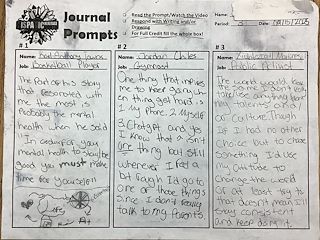 ESPA
Journal
Prompts
Read the Prompt/Watch the Video
Respond with Writing and/or
Drawing
For Full Credit fill the whole box!
Name:
Period: 3
# 1
Name: Karl-Anthony Towns
Job: Basketball Player
The Part of his story
that resonated with
me the most is
Probably the mental
health when he said
"In order for you
mental health to stay/be
good you must make
time for yourself"
# 2
Name: Jordan Chiles
Job: Gymnast
One thing that inspires
me to keep going when
thing get hard is
1. My Phone, 2. Myself
3. Chatgpt and yes
I know that 3 isn't
one thing but still
whenever I feel a
bit rough I'd go to
one of those things
since I don't really
talk to my Parents
# 3
Name:
Job: Public Activist
The world would
the same I don't really
my talents and
or culture. Though
if I had no other
choice but to choose
something I'd use
my attitude to
change the world
or at least try to
that doesn't mean I'll stay
consistent and
keep doing it.